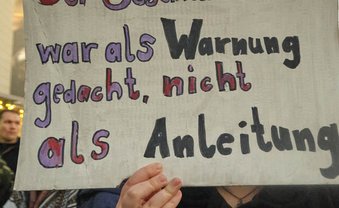 war als Warnung
gedacht, nicht
als Anleitung